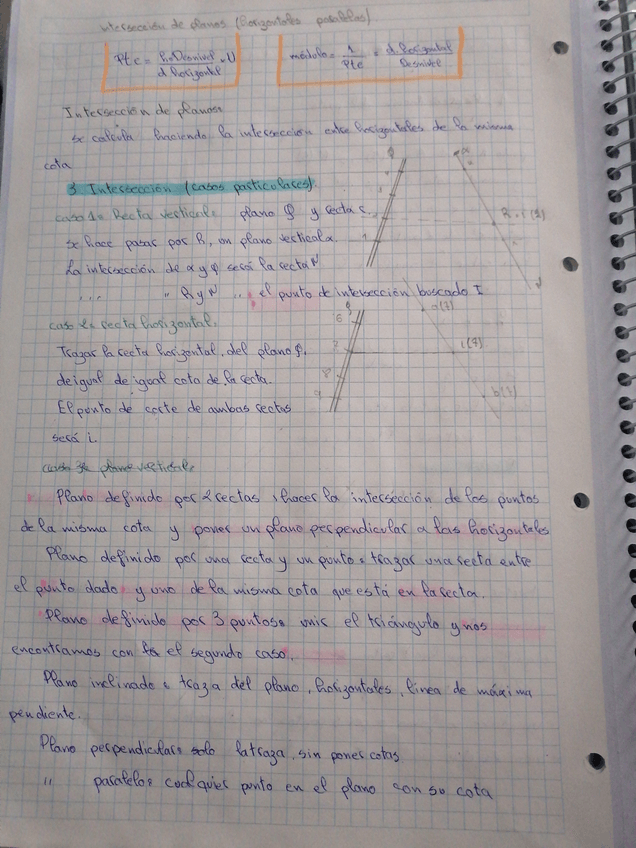 intersección de planos (horizontales paralelas)
Pte = h. Desnivel / d Horizontal . U
módulo = 1 / Pte = d. horizontal / Desnivel
Intersección de planos:
se calcula haciendo la intersección entre horizontales de la misma
cota
3 Intersección (casos particulares)
caso 1: Recta vertical: plano φ y recta r.
se hace pasar por R, un plano vertical α.
La intersección de α y φ será la recta N
" " " R y N " el punto de intersección buscado I
caso 2: recta horizontal:
Trazar la recta horizontal, del plano φ,
de igual de igual cota de la recta.
El punto de corte de ambas rectas
será i.
caso 3: plano vertical:
Plano definido por 2 rectas: hacer la intersección de los puntos
de la misma cota y poner un plano perpendicular a las horizontales
Plano definido por una recta y un punto: trazar una recta entre
el punto dado y uno de la misma cota que está en la recta.
Plano definido por 3 puntos: unir el triángulo y nos
encontramos con el segundo caso.
Plano inclinado: traza del plano, horizontales, línea de máxima
pendiente.
Plano perpendicular: solo la traza, sin poner cotas.
" paralelo: cualquier punto en el plano con su cota